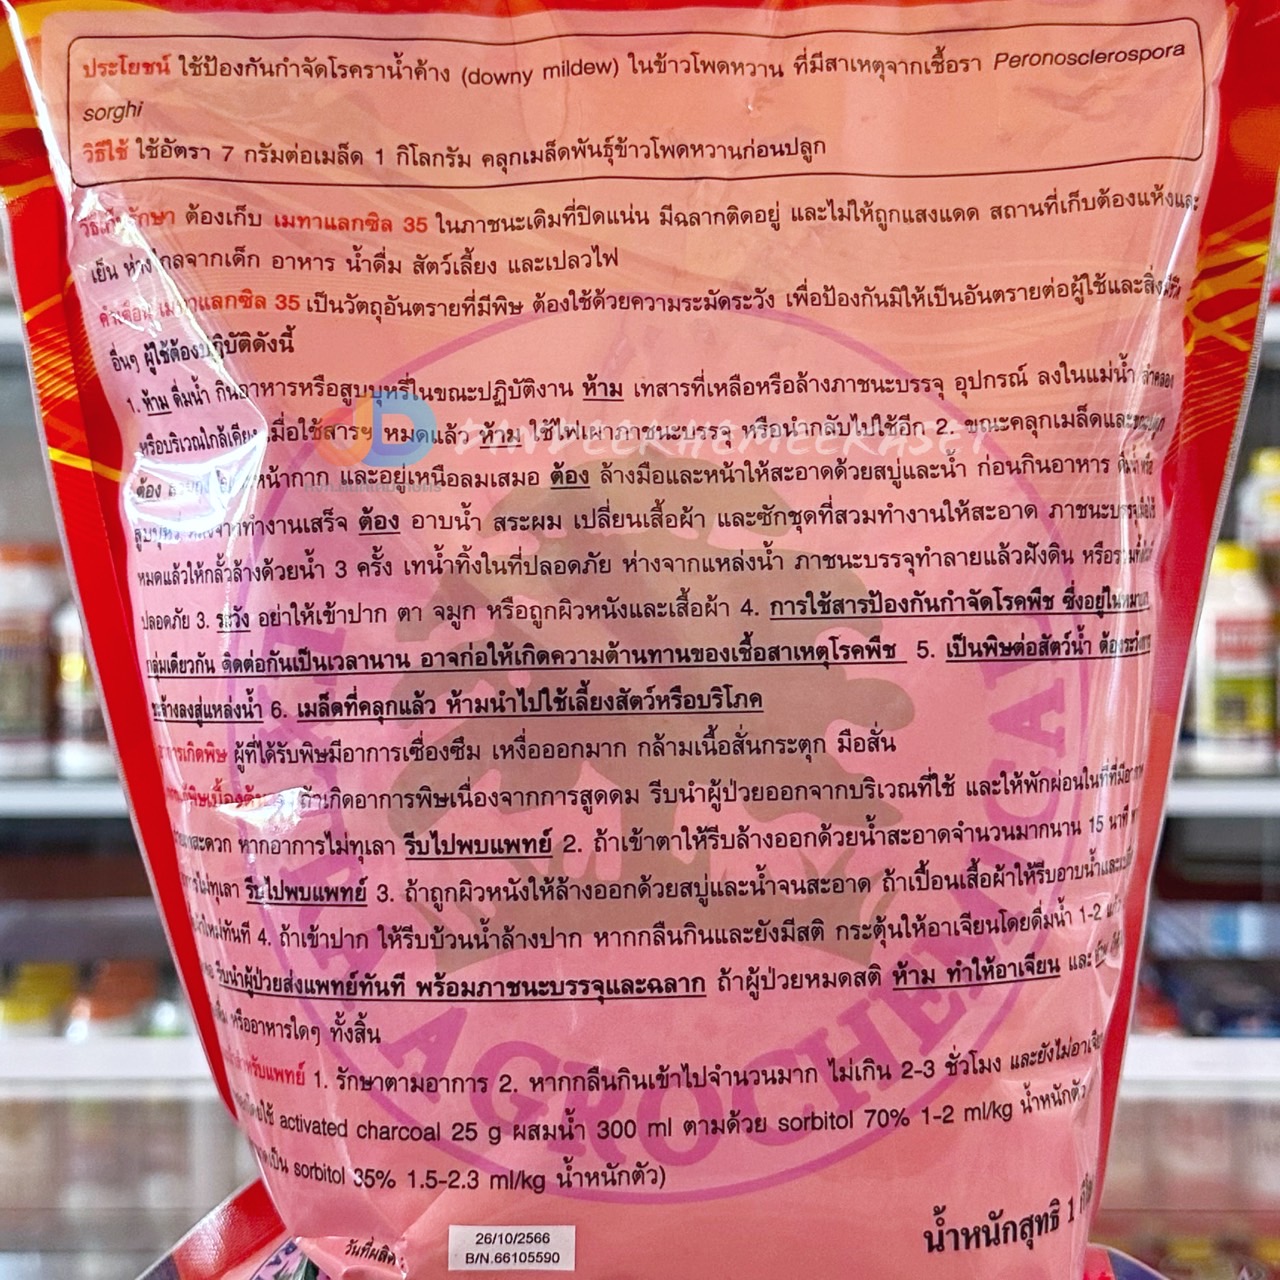 ประโยชน์ ใช้ป้องกันกำจัดโรคราน้ำค้าง (downy mildew) ในข้าวโพดหวาน ที่มีสาเหตุจากเชื้อรา Peronosclerospora
sorghi
วิธีใช้ ใช้อัตรา 7 กรัมต่อเมล็ด 1 กิโลกรัม คลุกเมล็ดพันธุ์ข้าวโพดหวานก่อนปลูก
วิธีเก็บรักษา ต้องเก็บ เมทาแลกซิล 35 ในภาชนะเดิมที่ปิดแน่น มีฉลากติดอยู่ และไม่ให้ถูกแสงแดด สถานที่เก็บต้องแห้งและ
เย็น ห่างไกลจากเด็ก อาหาร น้ำดื่ม สัตว์เลี้ยง และเปลวไฟ
คำเตือน เมทาแลกซิล 35 เป็นวัตถุอันตรายที่มีพิษ ต้องใช้ด้วยความระมัดระวัง เพื่อป้องกันมิให้เป็นอันตรายต่อผู้ใช้และสิ่งมีชีวิต
อื่นๆ ผู้ใช้ต้องปฏิบัติดังนี้
1. ห้าม ดื่มน้ำ กินอาหารหรือสูบบุหรี่ในขณะปฏิบัติงาน ห้าม เทสารที่เหลือหรือล้างภาชนะบรรจุ อุปกรณ์ ลงในแม่น้ำ ลำคลอง
หรือบริเวณใกล้เคียง เมื่อใช้สารฯ หมดแล้ว ห้าม ใช้ไฟเผาภาชนะบรรจุ หรือนำกลับไปใช้อีก 2. ขณะคลุกเมล็ดและขณะปลูก
ต้อง หน้ากาก และอยู่เหนือลมเสมอ ต้อง ล้างมือและหน้าให้สะอาดด้วยสบู่และน้ำ ก่อนกินอาหาร
สูบบุหรี่ หลังจากทำงานเสร็จ ต้อง อาบน้ำ สระผม เปลี่ยนเสื้อผ้า และซักชุดที่สวมทำงานให้สะอาด ภาชนะบรรจุเมื่อใช้
หมดแล้วให้กลั้วล้างด้วยน้ำ 3 ครั้ง เทน้ำทิ้งในที่ปลอดภัย ห่างจากแหล่งน้ำ ภาชนะบรรจุทำลายแล้วฝังดิน
ปลอดภัย 3. ระวัง อย่าให้เข้าปาก ตา จมูก หรือถูกผิวหนังและเสื้อผ้า 4. การใช้สารป้องกันกำจัดโรคพืช ซึ่งอยู่ใน
กลุ่มเดียวกัน ติดต่อกันเป็นเวลานาน อาจก่อให้เกิดความต้านทานของเชื้อสาเหตุโรคพืช 5. เป็นพิษต่อสัตว์น้ำ ต้องระวังการ
ชะล้างลงสู่แหล่งน้ำ 6. เมล็ดที่คลุกแล้ว ห้ามนำไปใช้เลี้ยงสัตว์หรือบริโภค
อาการเกิดพิษ ผู้ที่ได้รับพิษมีอาการเซื่องซึม เหงื่อออกมาก กล้ามเนื้อสั่นกระตุก มือสั่น
การแก้พิษเบื้องต้น ถ้าเกิดอาการพิษเนื่องจากการสูดดม รีบนำผู้ป่วยออกจากบริเวณที่ใช้ และให้พักผ่อนในที่ที่มี
สะดวก หากอาการไม่ทุเลา รีบไปพบแพทย์ 2. ถ้าเข้าตาให้รีบล้างออกด้วยน้ำสะอาดจำนวนมากนาน 15 นาที
ไม่ทุเลา รีบไปพบแพทย์ 3. ถ้าถูกผิวหนังให้ล้างออกด้วยสบู่และน้ำจนสะอาด ถ้าเปื้อนเสื้อผ้าให้รีบอาบน้ำและ
ใหม่ทันที 4. ถ้าเข้าปาก ให้รีบบ้วนน้ำล้างปาก หากกลืนกินและยังมีสติ กระตุ้นให้อาเจียนโดยดื่มน้ำ 1-2
รีบนำผู้ป่วยส่งแพทย์ทันที พร้อมภาชนะบรรจุและฉลาก ถ้าผู้ป่วยหมดสติ ห้าม ทำให้อาเจียน และ
หรืออาหารใดๆ ทั้งสิ้น
สำหรับแพทย์ 1. รักษาตามอาการ 2. หากกลืนกินเข้าไปจำนวนมาก ไม่เกิน 2-3 ชั่วโมง และยังไม่อาเจียน
activated charcoal 25 g ผสมน้ำ 300 ml ตามด้วย sorbitol 70% 1-2 ml/kg น้ำหนักตัว
เป็น sorbitol 35% 1.5-2.3 ml/kg น้ำหนักตัว)
น้ำหนักสุทธิ 1
วันที่ผลิต :
26/10/2566
B/N.66105590
AGROCHEMICAL